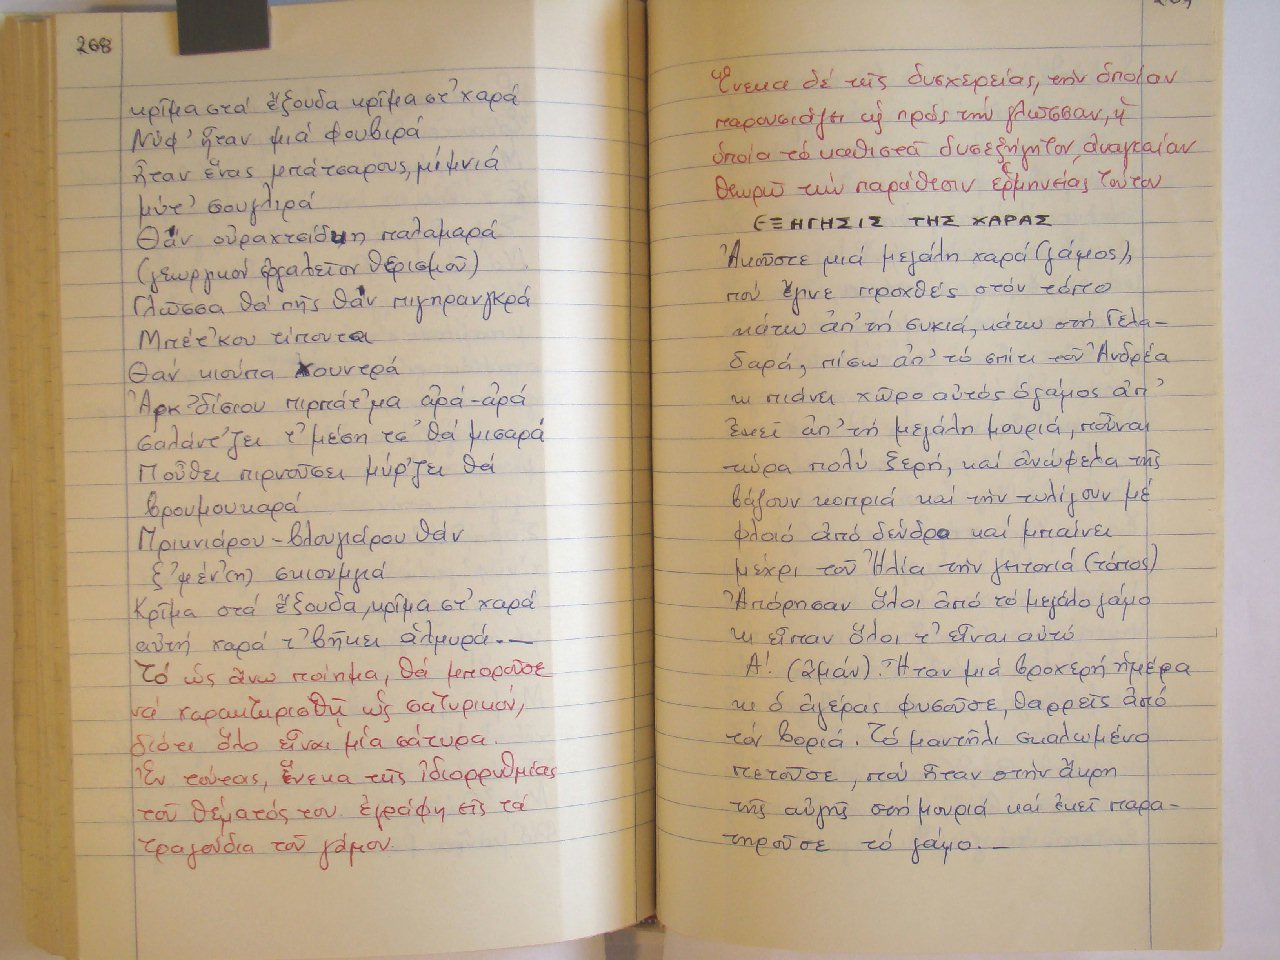 268
κρῖμα στά ἔξουδα κρῖμα στ᾽ χαρά
Νύφ᾽ ἦταν μιά φουβιρά
ἦταν ἕνας μπάτσαρους, μέ μνιά
μύτ᾽ σουγλιρά
Θἄν οὐραχτσίδ᾽κη παλαμαρά
(γεωργικόν ἐργαλεῖον θερισμοῦ)
Γλῶσσα θά πῆς θἄν
Μπέτ᾽κου τίπουτα
Θἄν κιούπα χουντρά
Ἀρκ᾽δίσιου πιρπάτ᾽μα ἀρά-ἀρά
σαλάντ᾽ζει τ᾽ μέση τσ᾽ θά μισαρά
Ποῦθει πιρνοῦσει μύρ᾽ζει θά
βρουμουκαρά
Πρικνιάρου-βλουγιάρου θἄν
Κρῖμα στά ἔξουδα, κρῖμα στ᾽ χαρά
αὐτή χαρά τ᾽ βῆκει ἁλμυρά.—
Τό ὡς ἄνω ποίημα, θά μποροῦσε
νά χαρακτηρισθῇ ὡς σατυρικόν,
διότι ὅλο εἶναι μία σάτυρα.
Ἐν τούτοις, ἕνεκα τῆς ἰδιορρυθμίας
τοῦ θέματός του ἐγράφη εἰς τά
τραγούδια τοῦ γάμου.
Ἕνεκα δέ τῆς δυσχερείας, τήν ὁποίαν
παρουσιάζει ὡς πρός τήν γλῶσσαν, ἡ
ὁποία τό καθιστᾶ δυσεξήγητον, ἀναγκαίαν
θεωρῶ τήν παράθεσιν ἑρμηνείας τούτου
ΕΞΗΓΗΣΙΣ ΤΗΣ ΧΑΡΑΣ
Ἀκοῦστε μιά μεγάλη χαρά (γάμος),
πού ἔγινε προχθές στόν τόπο
κάτω ἀπ᾽ τή συκιά, κάτω στή Γελα-
δαρά, πίσω ἀπ᾽ τό σπίτι τοῦ Ἀνδρέα
κι πιάνει χῶρο αὐτός ὁ γάμος ἀπ᾽
ἐκεῖ ἀπ᾽ τή μεγάλη μουριά, ποὖναι
τώρα πολύ ξερή, καί ἀνώφελα τῆς
βάζουν κοπριά καί τήν τυλίγουν μέ
φλοιό ἀπό δένδρο καί μπαίνει
μέχρι τοῦ Ἠλία τήν γειτονιά (τόπος)
Ἀπόρησαν ὅλοι ἀπό τό μεγάλο γάμο
κι εἶπαν ὅλοι τ᾽ εἶναι αὐτό
Ἀ! (ἀμάν). Ἦταν μιά βροχερή ἡμέρα
κι ὁ ἀγέρας φυσοῦσε, θαρρεῖς ἀπό
τόν βοριά. Τό μαντῆλι σκαλωμένο
πετοῦσε, πού ἦταν στήν ἄκρη
τῆς αὐλῆς στή μουριά καί ἐκεῖ παρα-
τηροῦσε τό γάμο.—